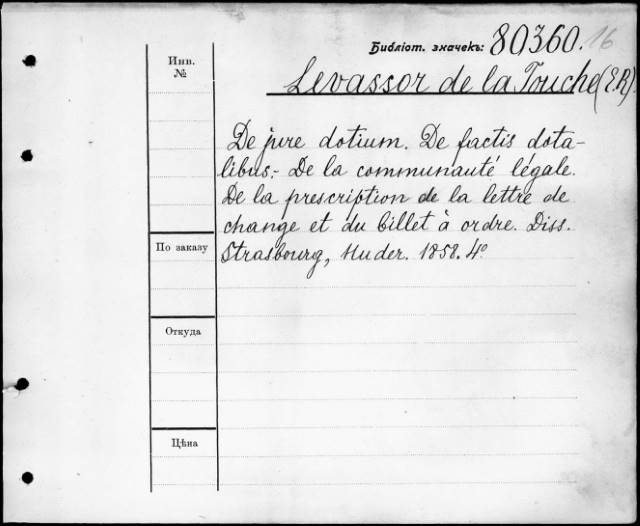 Библіот. значекъ: 80360. 16
Инв.
№
Levassor de la Touche (E.R).
De jure dotium. De factis dota-
libus.- De la communauté légale.
De la prescription de la lettre de
change et du billet à ordre. Diss.
По заказу
Strasbourg, Huder. 1858. 4º
Откуда
Цѣна